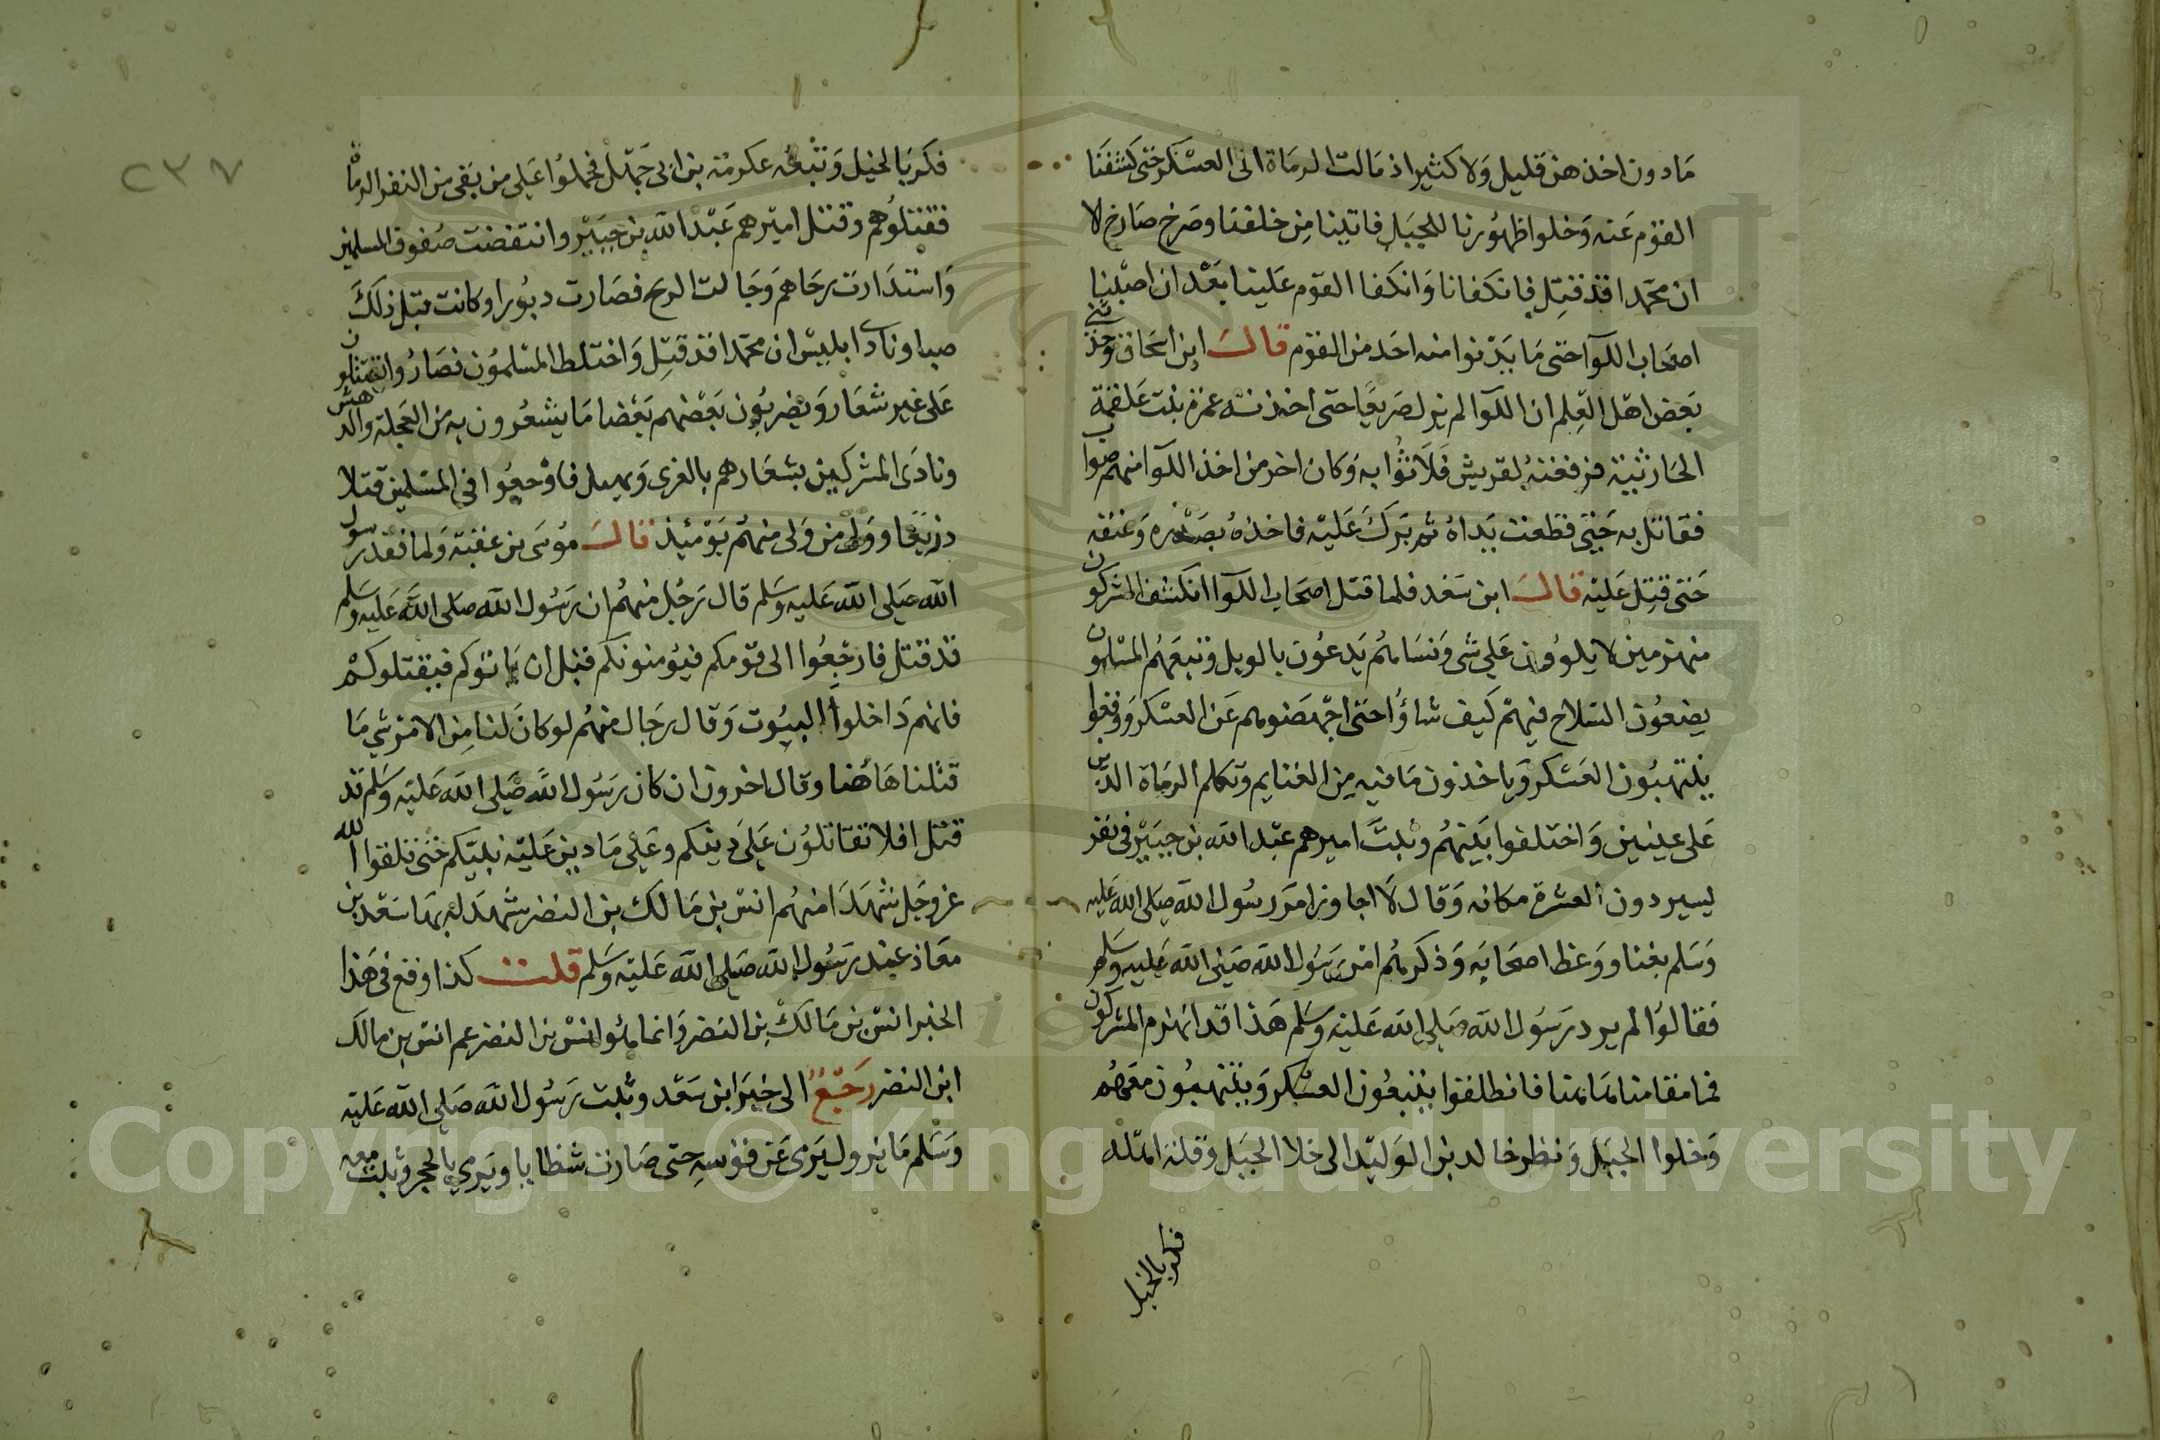 مادون اخذهن قليل ولا كثير اذ مالت الرماة الى العسكر حتى كشفنا
القوم عنه وخلوا ظهورنا للجبل فاتينا من خلفنا وصرخ صارخ الا
ان محمدا قد قتل فانكفانا وانكفا القوم علينا بعد ان اصبنا
اصحاب اللوآ حتى ما يدنوا منه احد من القوم قال ابن اسحاق وحدثني
بعض اهل العلم ان اللوآ لم يزل صريعا حتى اخذته عمرة بنت علقمة
الحارثية فرفعته لقريش فلاثوا به وكان اخر من اخذ اللوآ منهم صواب
فقاتل به حتى قطعت يداه ثم برك عليه فاخذه بصدره وعنقه
حتى قتل عليه قال ابن سعد فلما قتل اصحاب اللوآ انكشف المشركون
منهزمين لا يلوون على شى ونساهم يدعون بالويل وتبعهم المسلمون
يضعون السلاح فيهم كيف شاؤا حتى اجهضوهم عن العسكر ووقفوا
ينتهبون العسكر وياخذون ما فيه من الغنايم وتكلم الرماة الذين
على عينين واختلفوا بينهم وثبت اميرهم عبد الله بن جبير فى نفر
يسير دون العشرة مكانه وقال لا اجاوز امر رسول الله صلى الله عليه
وسلم بغنا ووعظ اصحابه وذكرهم امر رسول الله صلى الله عليه وسلم
فقالوا لم يرد رسول الله صلى الله عليه وسلم هذا قد انهزم المشركون
فما مقامنا هاهنا فانطلقوا يتبعون العسكر وينتهبون معهم
وخلوا الجبل ونظر خالد بن الوليد الى خلا الجبل وقلة اهله
فكر بالخيل
٢٣٧
فكر بالخيل وتبعه عكرمة بن ابى جهل فحملوا على من بقى من النفر الرماة
فقتلوهم وقتل اميرهم عبد الله بن جبير وانتقضت صفوف المسلمين
واستدارت رحاهم وجالت الريح فصارت دبورا وكانت قبل ذلك
صبا ونادى ابليس ان محمدا قد قتل واختلط المسلمون فصاروا يقتتلون
على غير شعار ويضرب بعضهم بعضا ما يشعرون به من العجلة والدهش
ونادى المشركين بشعارهم بالعزى وبهبل فاوجعوا فى المسلمين قتلا
ذريعا وولى من ولى منهم يومئيذ قال موسى بن عقبة ولما فقد رسول
الله صلى الله عليه وسلم قال رجل منهم ان رسول الله صلى الله عليه وسلم
قد قتل فارجعوا الى قومكم فيومنونكم قبل ان ياتوكم فيقتلوكم
فانهم داخلوا البيوت وقال رجال منهم لو كان لنا من الامر شى ما
قتلنا هاهنا وقال اخرون ان كان رسول الله صلى الله عليه وسلم قد
قتل افلا تقاتلون على دينكم وعلى ما دين عليه نبيكم حتى تلقوا الله
عز وجل شهدا منهم انس بن مالك بن النضر شهد له بها سعد بن
معاذ عند رسول الله صلى الله عليه وسلم قلت كذا وقع فى هذا
الخبر انس بن مالك بن النضر وانما هو انس بن النضر عم انس بن مالك
ابن النضر رجع الى خبر ابن سعد وثبت رسول الله صلى الله عليه
وسلم ما يزول يرمى عن قوسه حتى صارت شظايا ويرمى بالحجر وثبت معه
Copyright © King Saud University